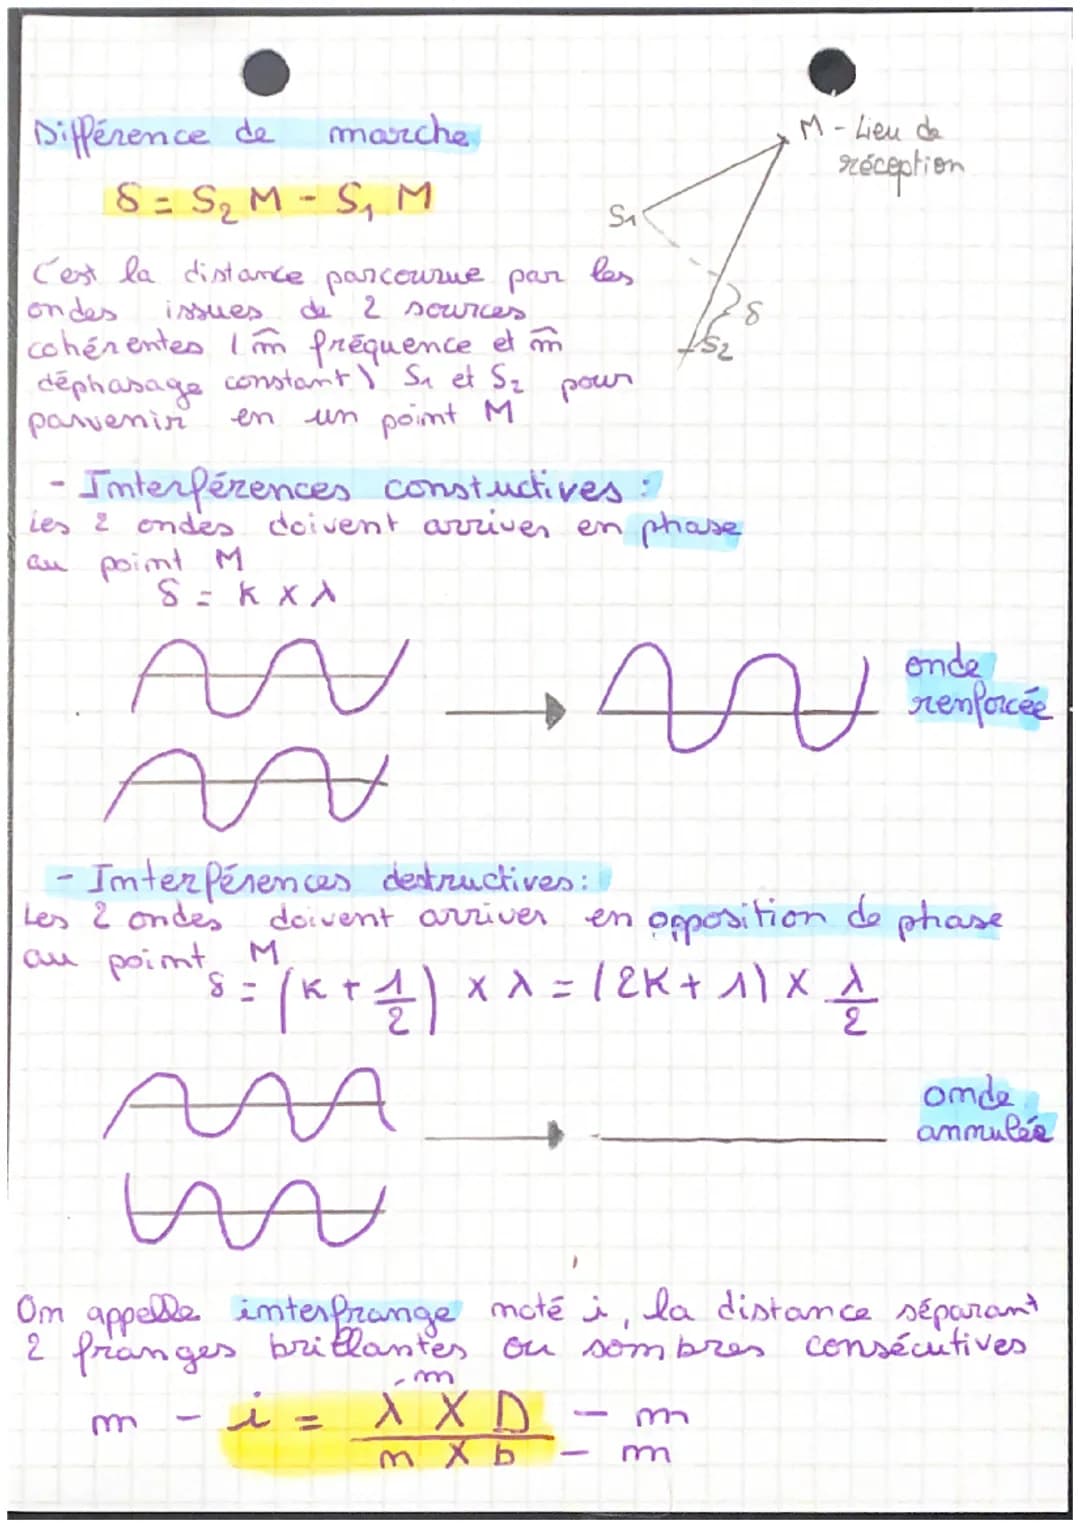 Différence de marche
δ = S₂ M - S₁ M
M - Lieu de
réception
S₁
δ
S₂
C'est la distance parcourue par les
ondes issues de 2 sources
cohérentes ( m̂ fréquence et m̂
déphasage constant ) S₁ et S₂ pour
parvenir en un point M
- Interférences constuctives :
Les 2 ondes doivent arriver en phase
au point M
δ = k x λ
onde
renforcée
- Interférences destructives :
Les 2 ondes doivent arriver en opposition de phase
au point M
δ = (k + 1/2) x λ = (2k + 1) x λ/2
onde
annulée
On appelle interfrange noté i, la distance séparant
2 franges brillantes ou sombres consécutives
m
m - i = λ X D - m
m X b - m